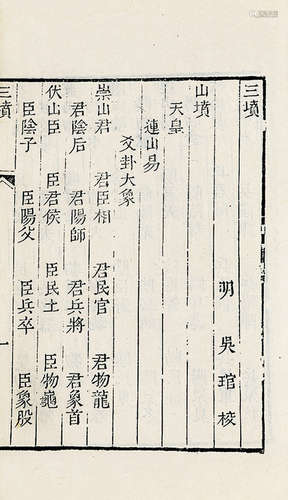 三墳
明 吳琯校
山墳
天皇
連山易
爻卦大象
崇山君 君臣相 君民官 君物龍
君陰后 君陽師 君兵將 君象首
伏山臣 臣君侯 臣民士 臣物龜
臣陰子 臣陽父 臣兵卒 臣象股
三墳
一